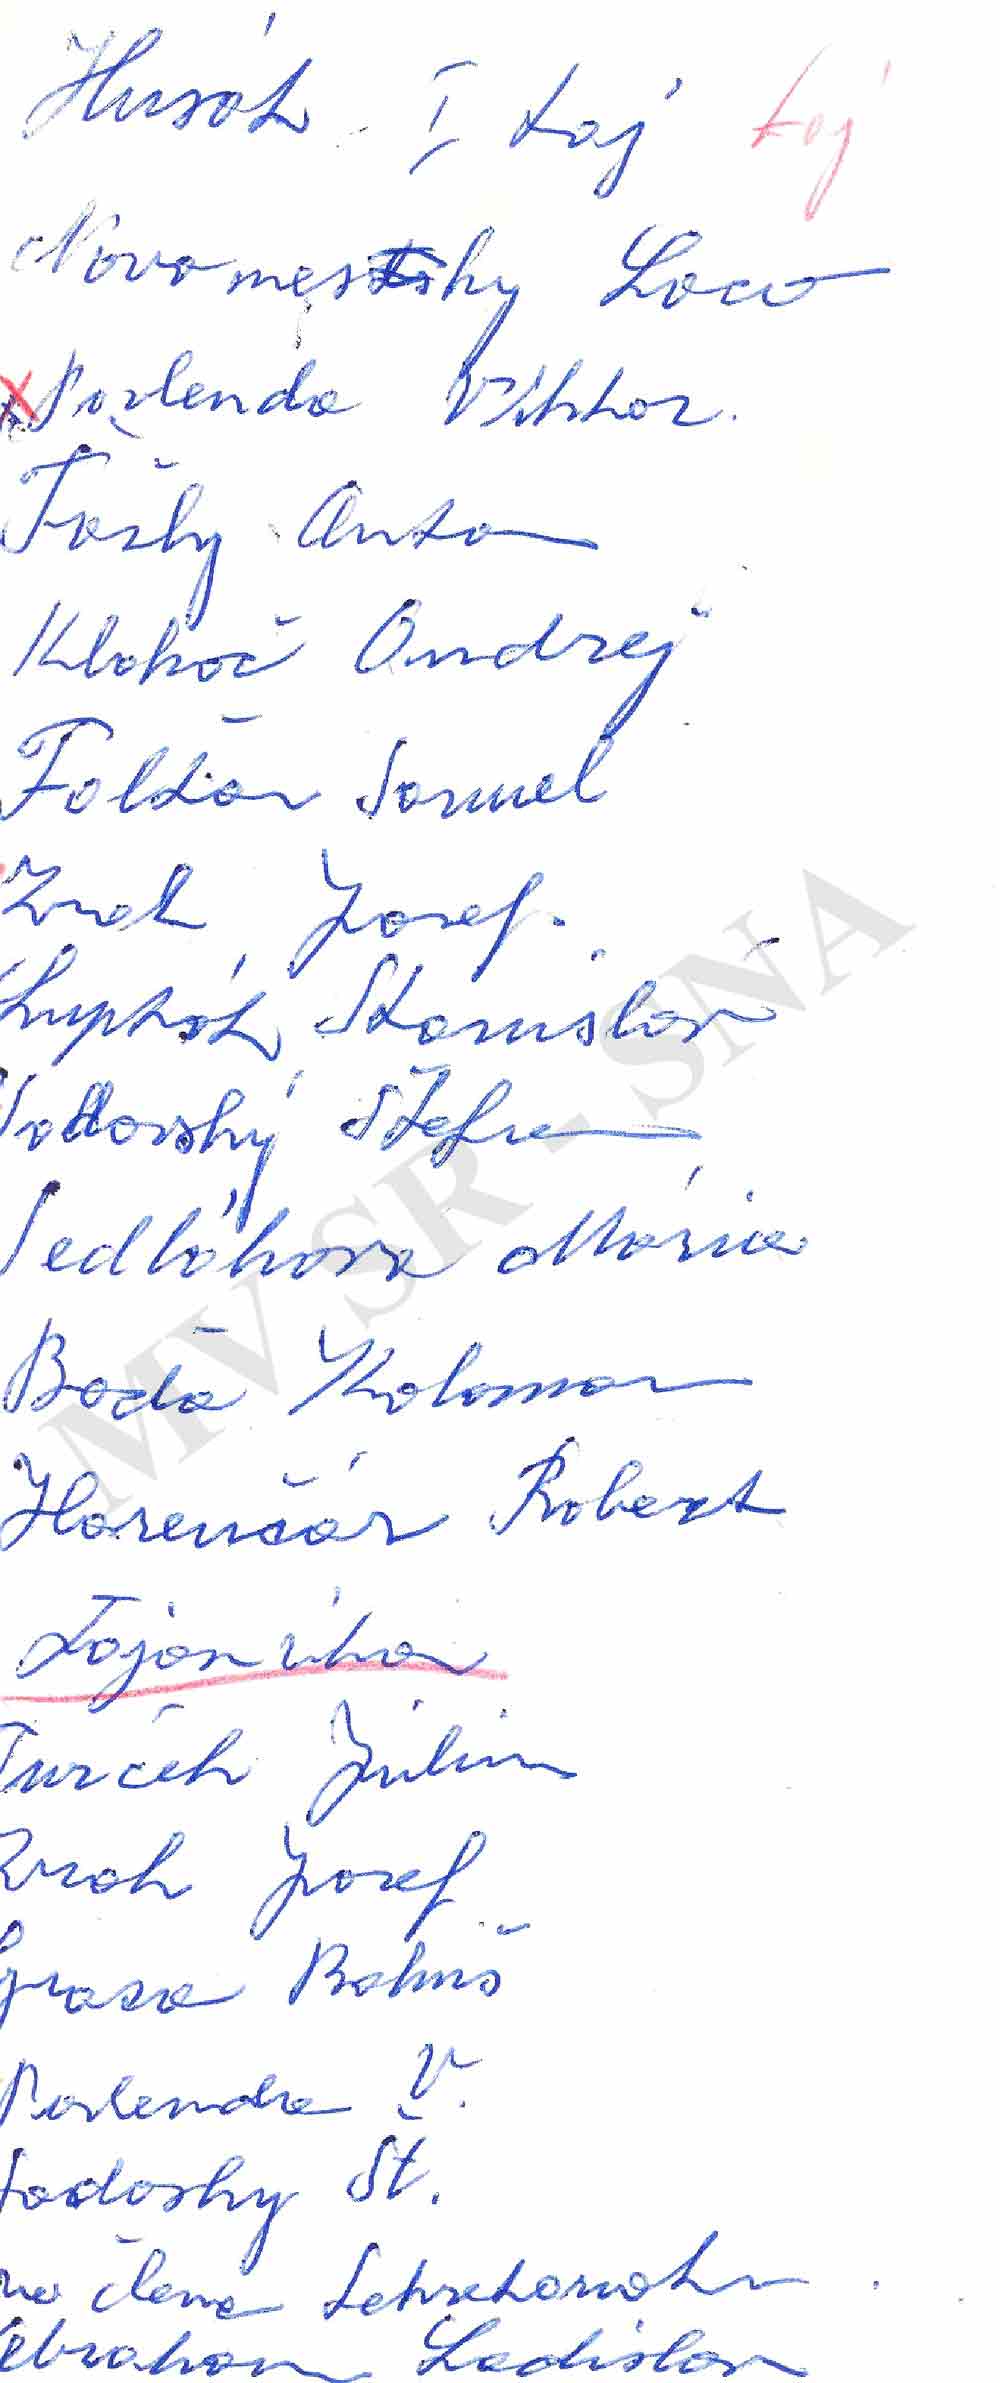 Husák I, taj taj
Novomeský Laco
Pavlenda Viktor.
Ťažký Anton
Klokoč Ondrej
Falťan Samuel
Zrak Jozef.
Lupták Stanislav
Sádovský Štefan
Sedláková Mária
Boďa Koloman
Harenčár Robert
Tajomníka
Turček Július
Zrak Jozef
Graca Bohuš
Pavlenda V.
Sadovský Št.
na člena Sekretariátu.
Abraham Ladislav
MV SR - SNA